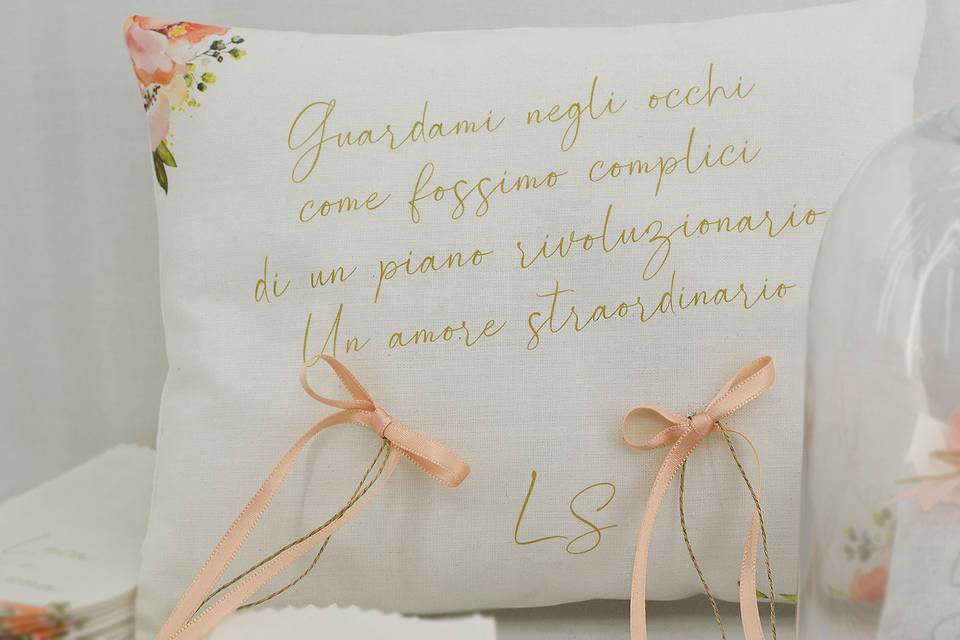 Guardami negli occhi
come fossimo complici
di un piano rivoluzionario
Un amore straordinario
LS